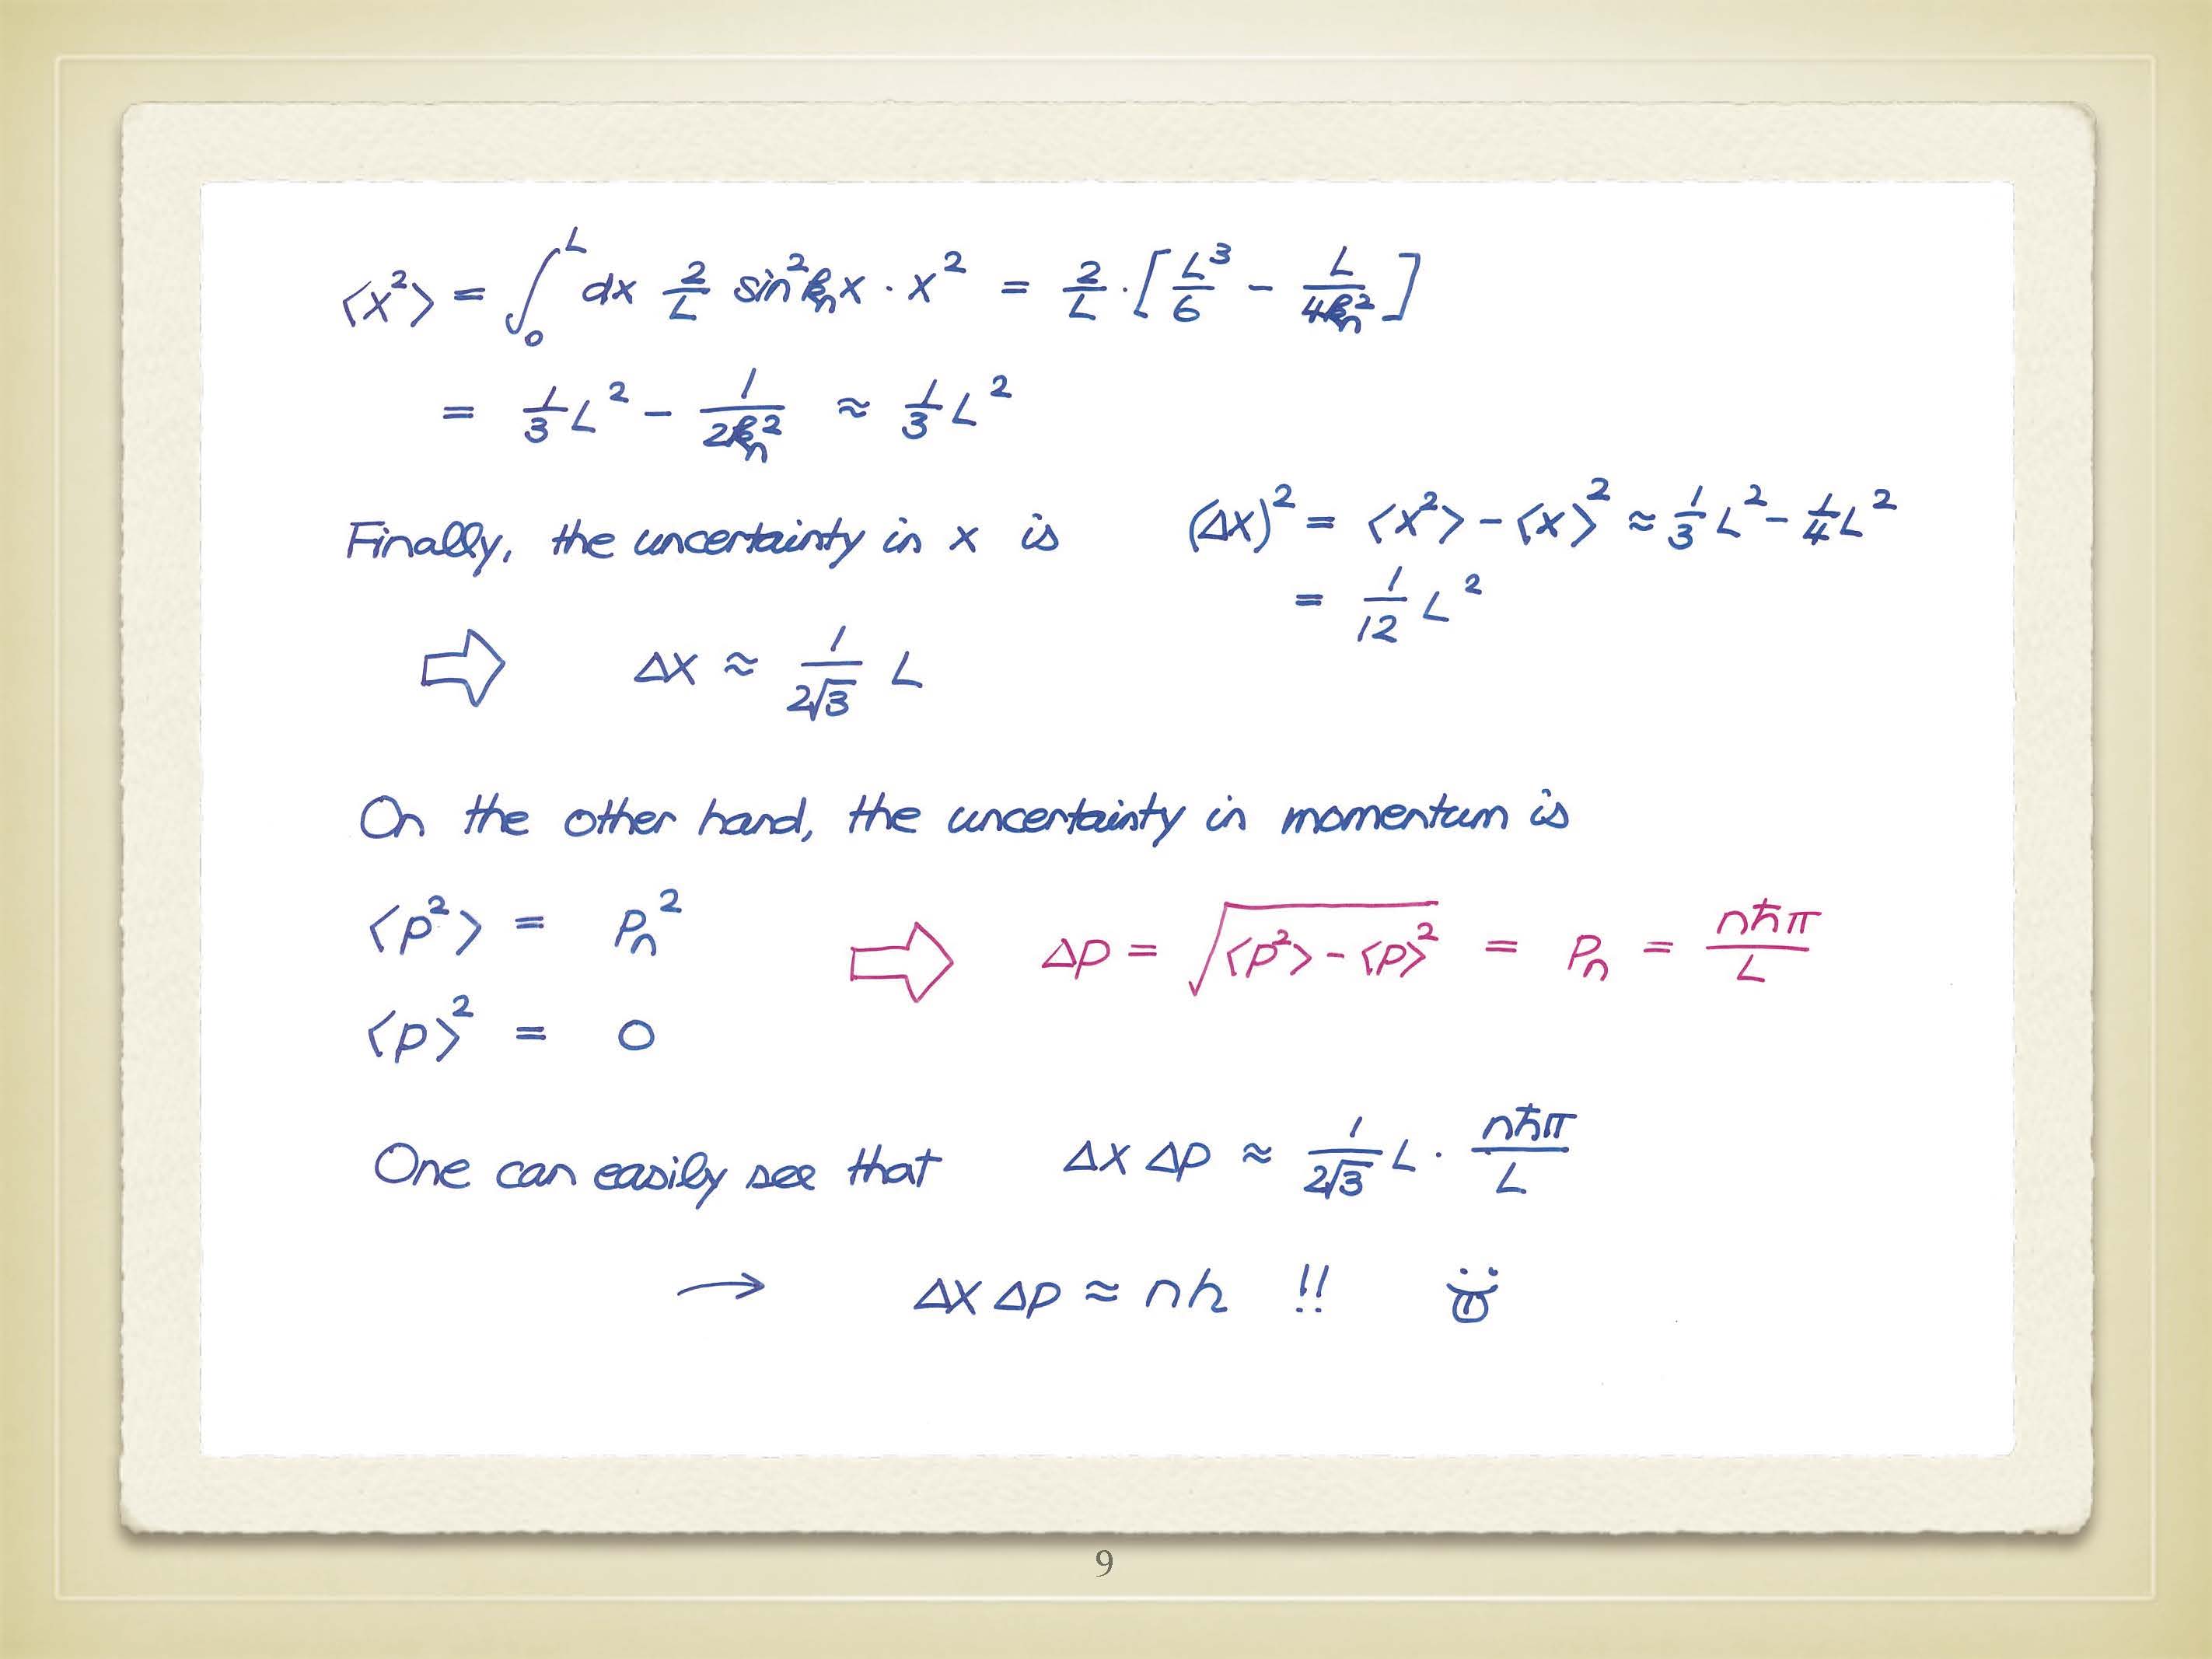 ⟨x²⟩ = ∫₀ᴸ dx 2/L sin²kₙx · x² = 2/L · [L³/6 − L/4kₙ²]
= 1/3 L² − 1/2kₙ² ≈ 1/3 L²
Finally, the uncertainty in x is (Δx)² = ⟨x²⟩ − ⟨x⟩² ≈ 1/3 L² − 1/4 L²
= 1/12 L²
⇨ Δx ≈ 1/2√3 L
On the other hand, the uncertainty in momentum is
⟨p²⟩ = pₙ² ⇨ Δp = √⟨p²⟩ − ⟨p⟩² = pₙ = nħπ/L
⟨p⟩² = 0
One can easily see that Δx Δp ≈ 1/2√3 L · nħπ/L
→ Δx Δp ≈ nh !!
9